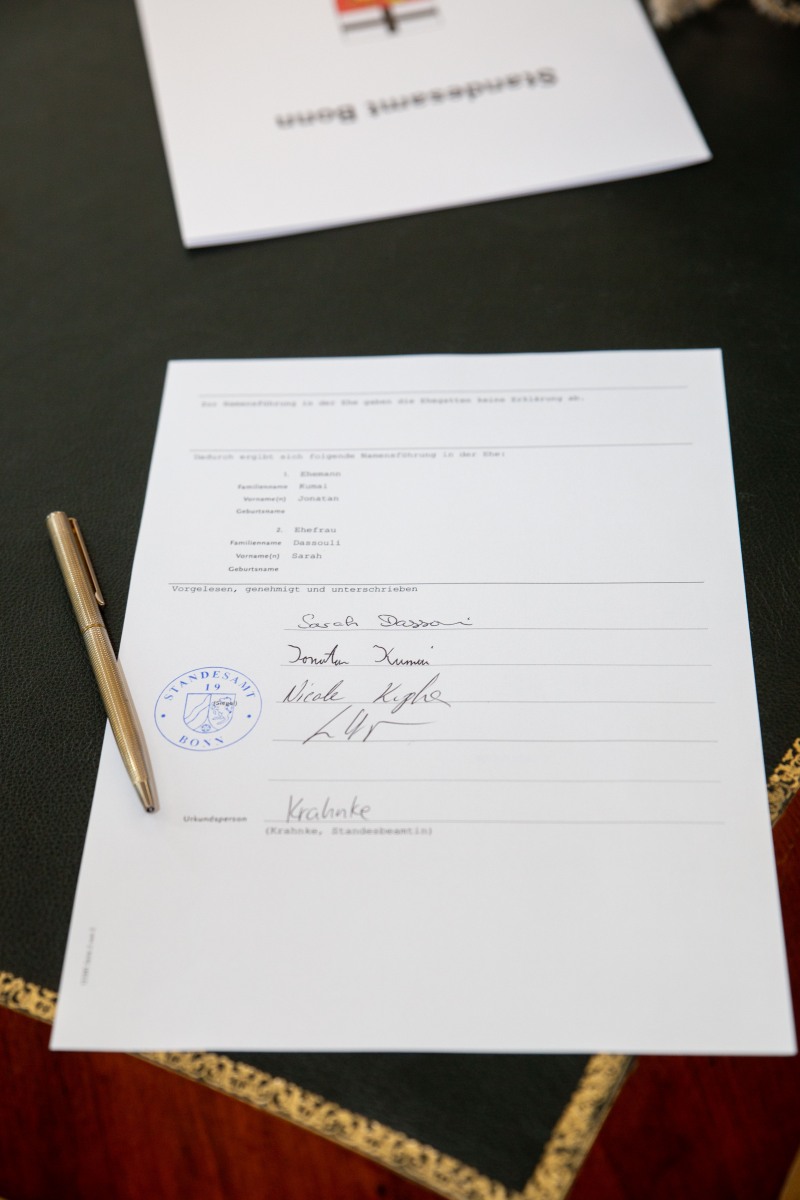 Standesamt Bonn
Zur Namensführung in der Ehe geben die Ehegatten keine Erklärung ab.
Dadurch ergibt sich folgende Namensführung in der Ehe:
1. Ehemann
Familienname Kumai
Vorname(n) Jonatan
Geburtsname
2. Ehefrau
Familienname Dassouli
Vorname(n) Sarah
Geburtsname
Vorgelesen, genehmigt und unterschrieben
Sarah
Jonatan Kumai
Nicole
STANDESAMT
19
(Siegel)
BONN
Krahnke
Urkundsperson
(Krahnke, Standesbeamtin)